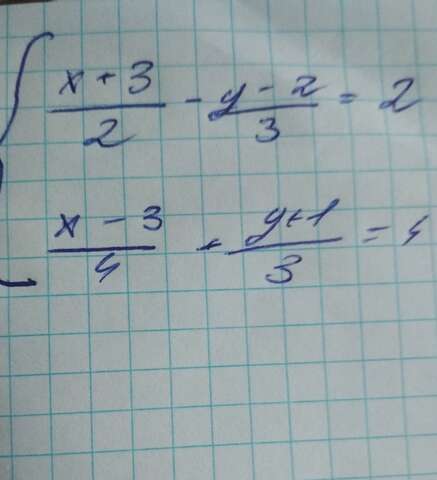 x + 3 / 2 - y - 2 / 3 = 2
x - 3 / 4 + y + 1 / 3 =